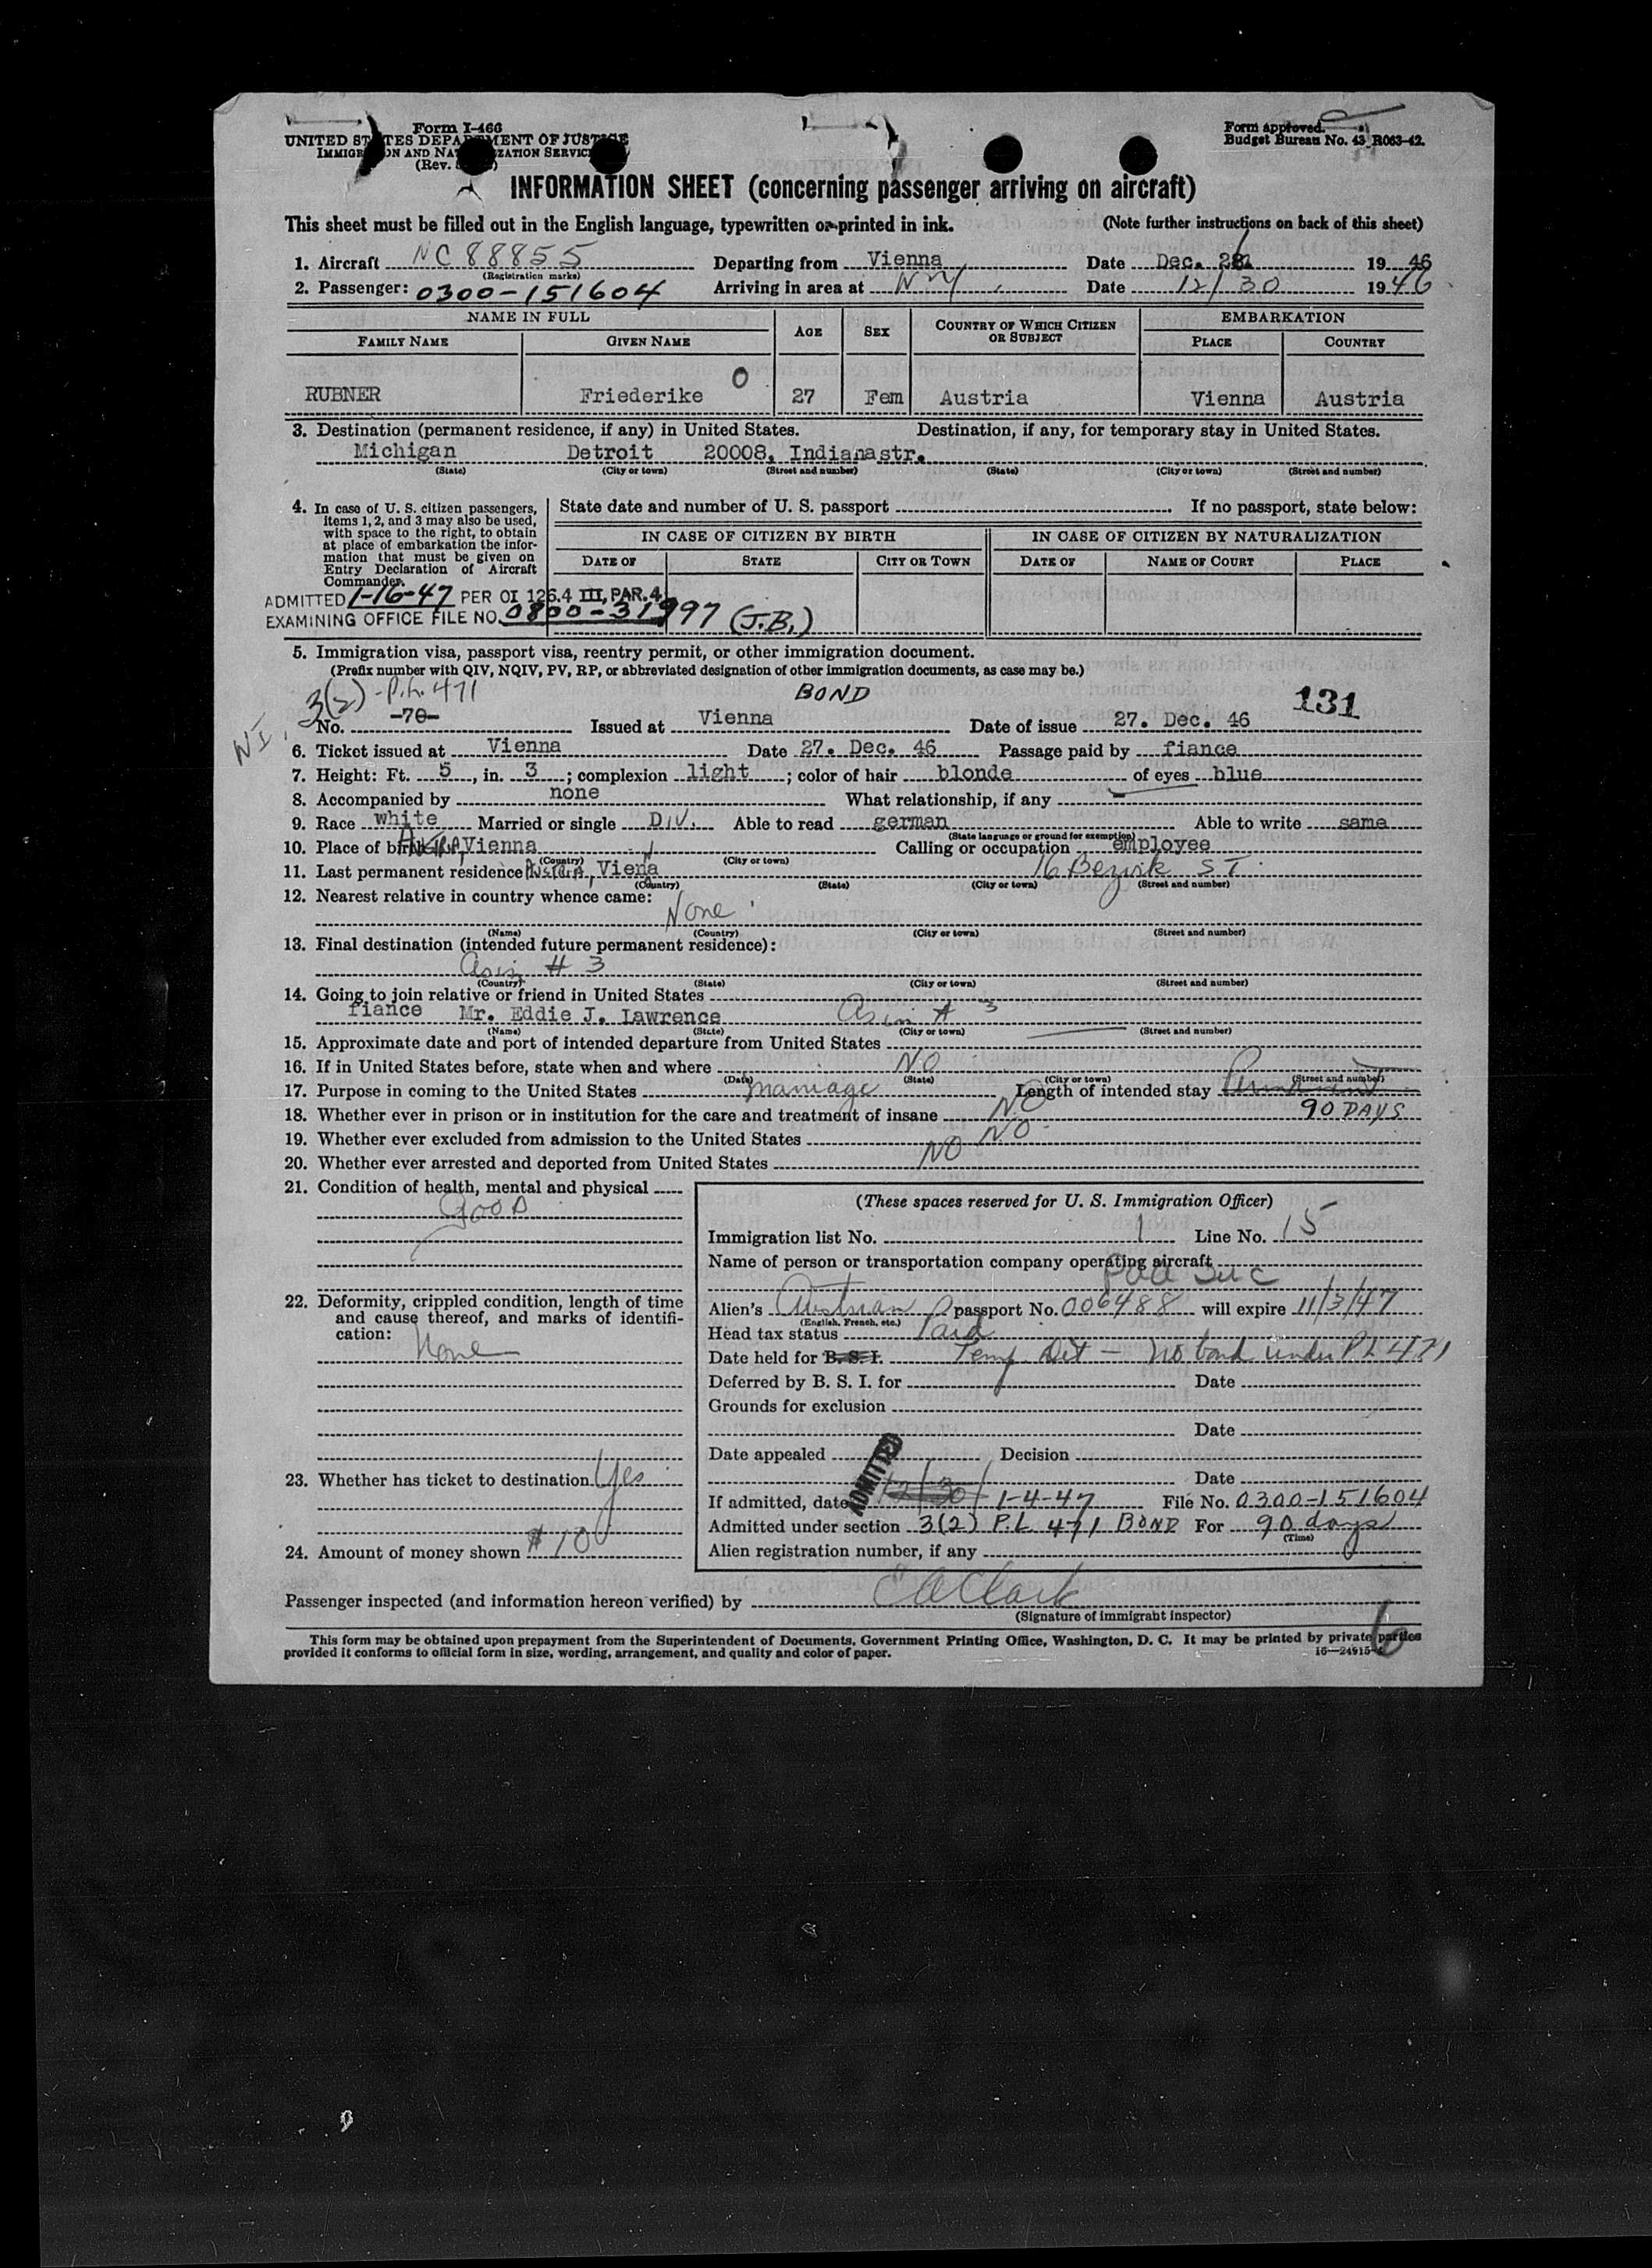 Form I-466
UNITED STATES DEPARTMENT OF JUSTICE
IMMIGRATION AND NATURALIZATION SERVICE
(Rev.
Form approved.
Budget Bureau No. 43-R063-42.
INFORMATION SHEET (concerning passenger arriving on aircraft)
This sheet must be filled out in the English language, typewritten or printed in ink. (Note further instructions on back of this sheet)
1. Aircraft NC 88855 Departing from Vienna Date Dec. 28 1946
(Registration marks)
2. Passenger: 0300-151604 Arriving in area at NY Date 12/30 1946
NAME IN FULL AGE SEX COUNTRY OF WHICH CITIZEN OR SUBJECT EMBARKATION
FAMILY NAME GIVEN NAME PLACE COUNTRY
RUBNER Friederike O 27 Fem Austria Vienna Austria
3. Destination (permanent residence, if any) in United States. Destination, if any, for temporary stay in United States.
Michigan Detroit 20008, Indianastr.
(State) (City or town) (Street and number) (State) (City or town) (Street and number)
4. In case of U. S. citizen passengers, items 1, 2, and 3 may also be used, with space to the right, to obtain at place of embarkation the information that must be given on Entry Declaration of Aircraft Commander.
State date and number of U. S. passport If no passport, state below:
IN CASE OF CITIZEN BY BIRTH IN CASE OF CITIZEN BY NATURALIZATION
DATE OF STATE CITY OR TOWN DATE OF NAME OF COURT PLACE
ADMITTED 1-16-47 PER OI 126.4 III, PAR. 4
EXAMINING OFFICE FILE NO. 0800-31997 (J.B.)
5. Immigration visa, passport visa, reentry permit, or other immigration document.
(Prefix number with QIV, NQIV, PV, RP, or abbreviated designation of other immigration documents, as case may be.)
3(2) - P.L. 471 BOND 131
NI.
No. -70- Issued at Vienna Date of issue 27. Dec. 46
6. Ticket issued at Vienna Date 27. Dec. 46 Passage paid by fiance
7. Height: Ft. 5, in. 3; complexion light; color of hair blonde of eyes blue
8. Accompanied by none What relationship, if any -
9. Race white Married or single DIV. Able to read german Able to write same
(State language or ground for exemption)
10. Place of birth Vienna Calling or occupation employee
(Country) (City or town)
11. Last permanent residence AUSTRIA, Viena 16 Bezirk ST.
(Country) (State) (City or town) (Street and number)
12. Nearest relative in country whence came:
None
(Name) (Country) (City or town) (Street and number)
13. Final destination (intended future permanent residence):
As in # 3
(Country) (State) (City or town) (Street and number)
14. Going to join relative or friend in United States
fiance Mr. Eddie J. Lawrence As in # 3
(Name) (State) (City or town) (Street and number)
15. Approximate date and port of intended departure from United States
16. If in United States before, state when and where NO
(Date) (State) (City or town) (Street and number)
17. Purpose in coming to the United States marriage Length of intended stay Permanent
90 DAYS
18. Whether ever in prison or in institution for the care and treatment of insane NO
19. Whether ever excluded from admission to the United States NO
20. Whether ever arrested and deported from United States NO
21. Condition of health, mental and physical
Good
22. Deformity, crippled condition, length of time and cause thereof, and marks of identification:
None
23. Whether has ticket to destination Yes
24. Amount of money shown $10
(These spaces reserved for U. S. Immigration Officer)
Immigration list No. 1 Line No. 15
Name of person or transportation company operating aircraft
PAA Inc
Alien's Austrian passport No. 006488 will expire 11/3/47
(English, French, etc.)
Head tax status Paid
Date held for B. S. I. Temp Det - no bond under PL 471
Deferred by B. S. I. for Date
Grounds for exclusion
Date
Date appealed Decision
Date
ADMITTED
If admitted, date 12/30/ 1-4-47 File No. 0300-151604
Admitted under section 3(2) P.L. 471 BOND For 90 days
(Time)
Alien registration number, if any
Passenger inspected (and information hereon verified) by Clark
(Signature of immigrant inspector)
This form may be obtained upon prepayment from the Superintendent of Documents, Government Printing Office, Washington, D. C. It may be printed by private parties
provided it conforms to official form in size, wording, arrangement, and quality and color of paper.
16-24915
6